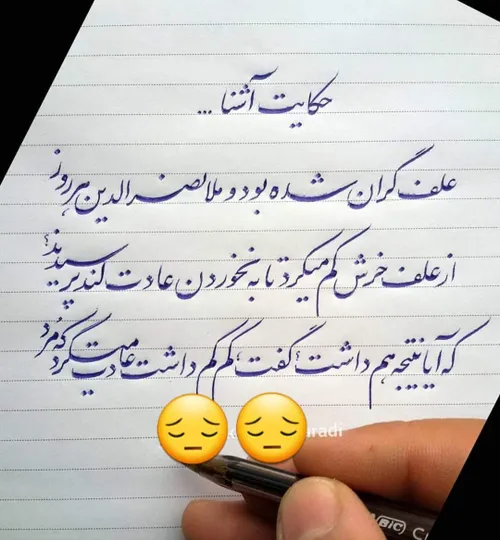 حکایت آشنا ...
علف گران شده بود و ملانصرالدین هر روز
از علف خرش کم میکرد تا به نخوردن عادت کند پرسیدند؛
که آیا نتیجه هم داشت؛ گفت؛ کم کم داشت عادت میکرد که مُرد
radi
BIC